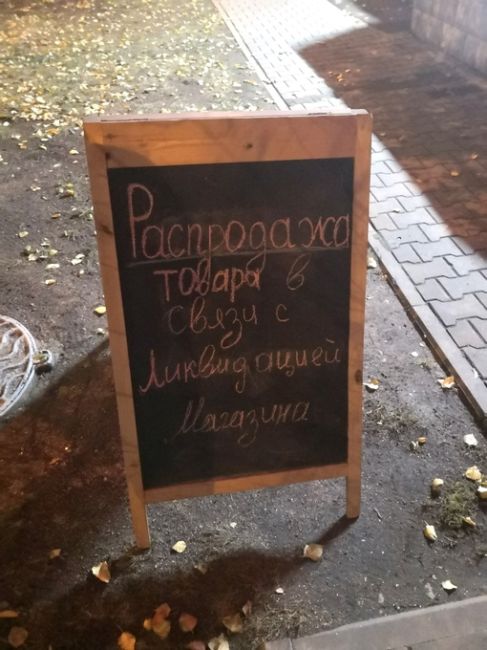 Распродажа
товара в
связи с
Ликвидацией
Магазина